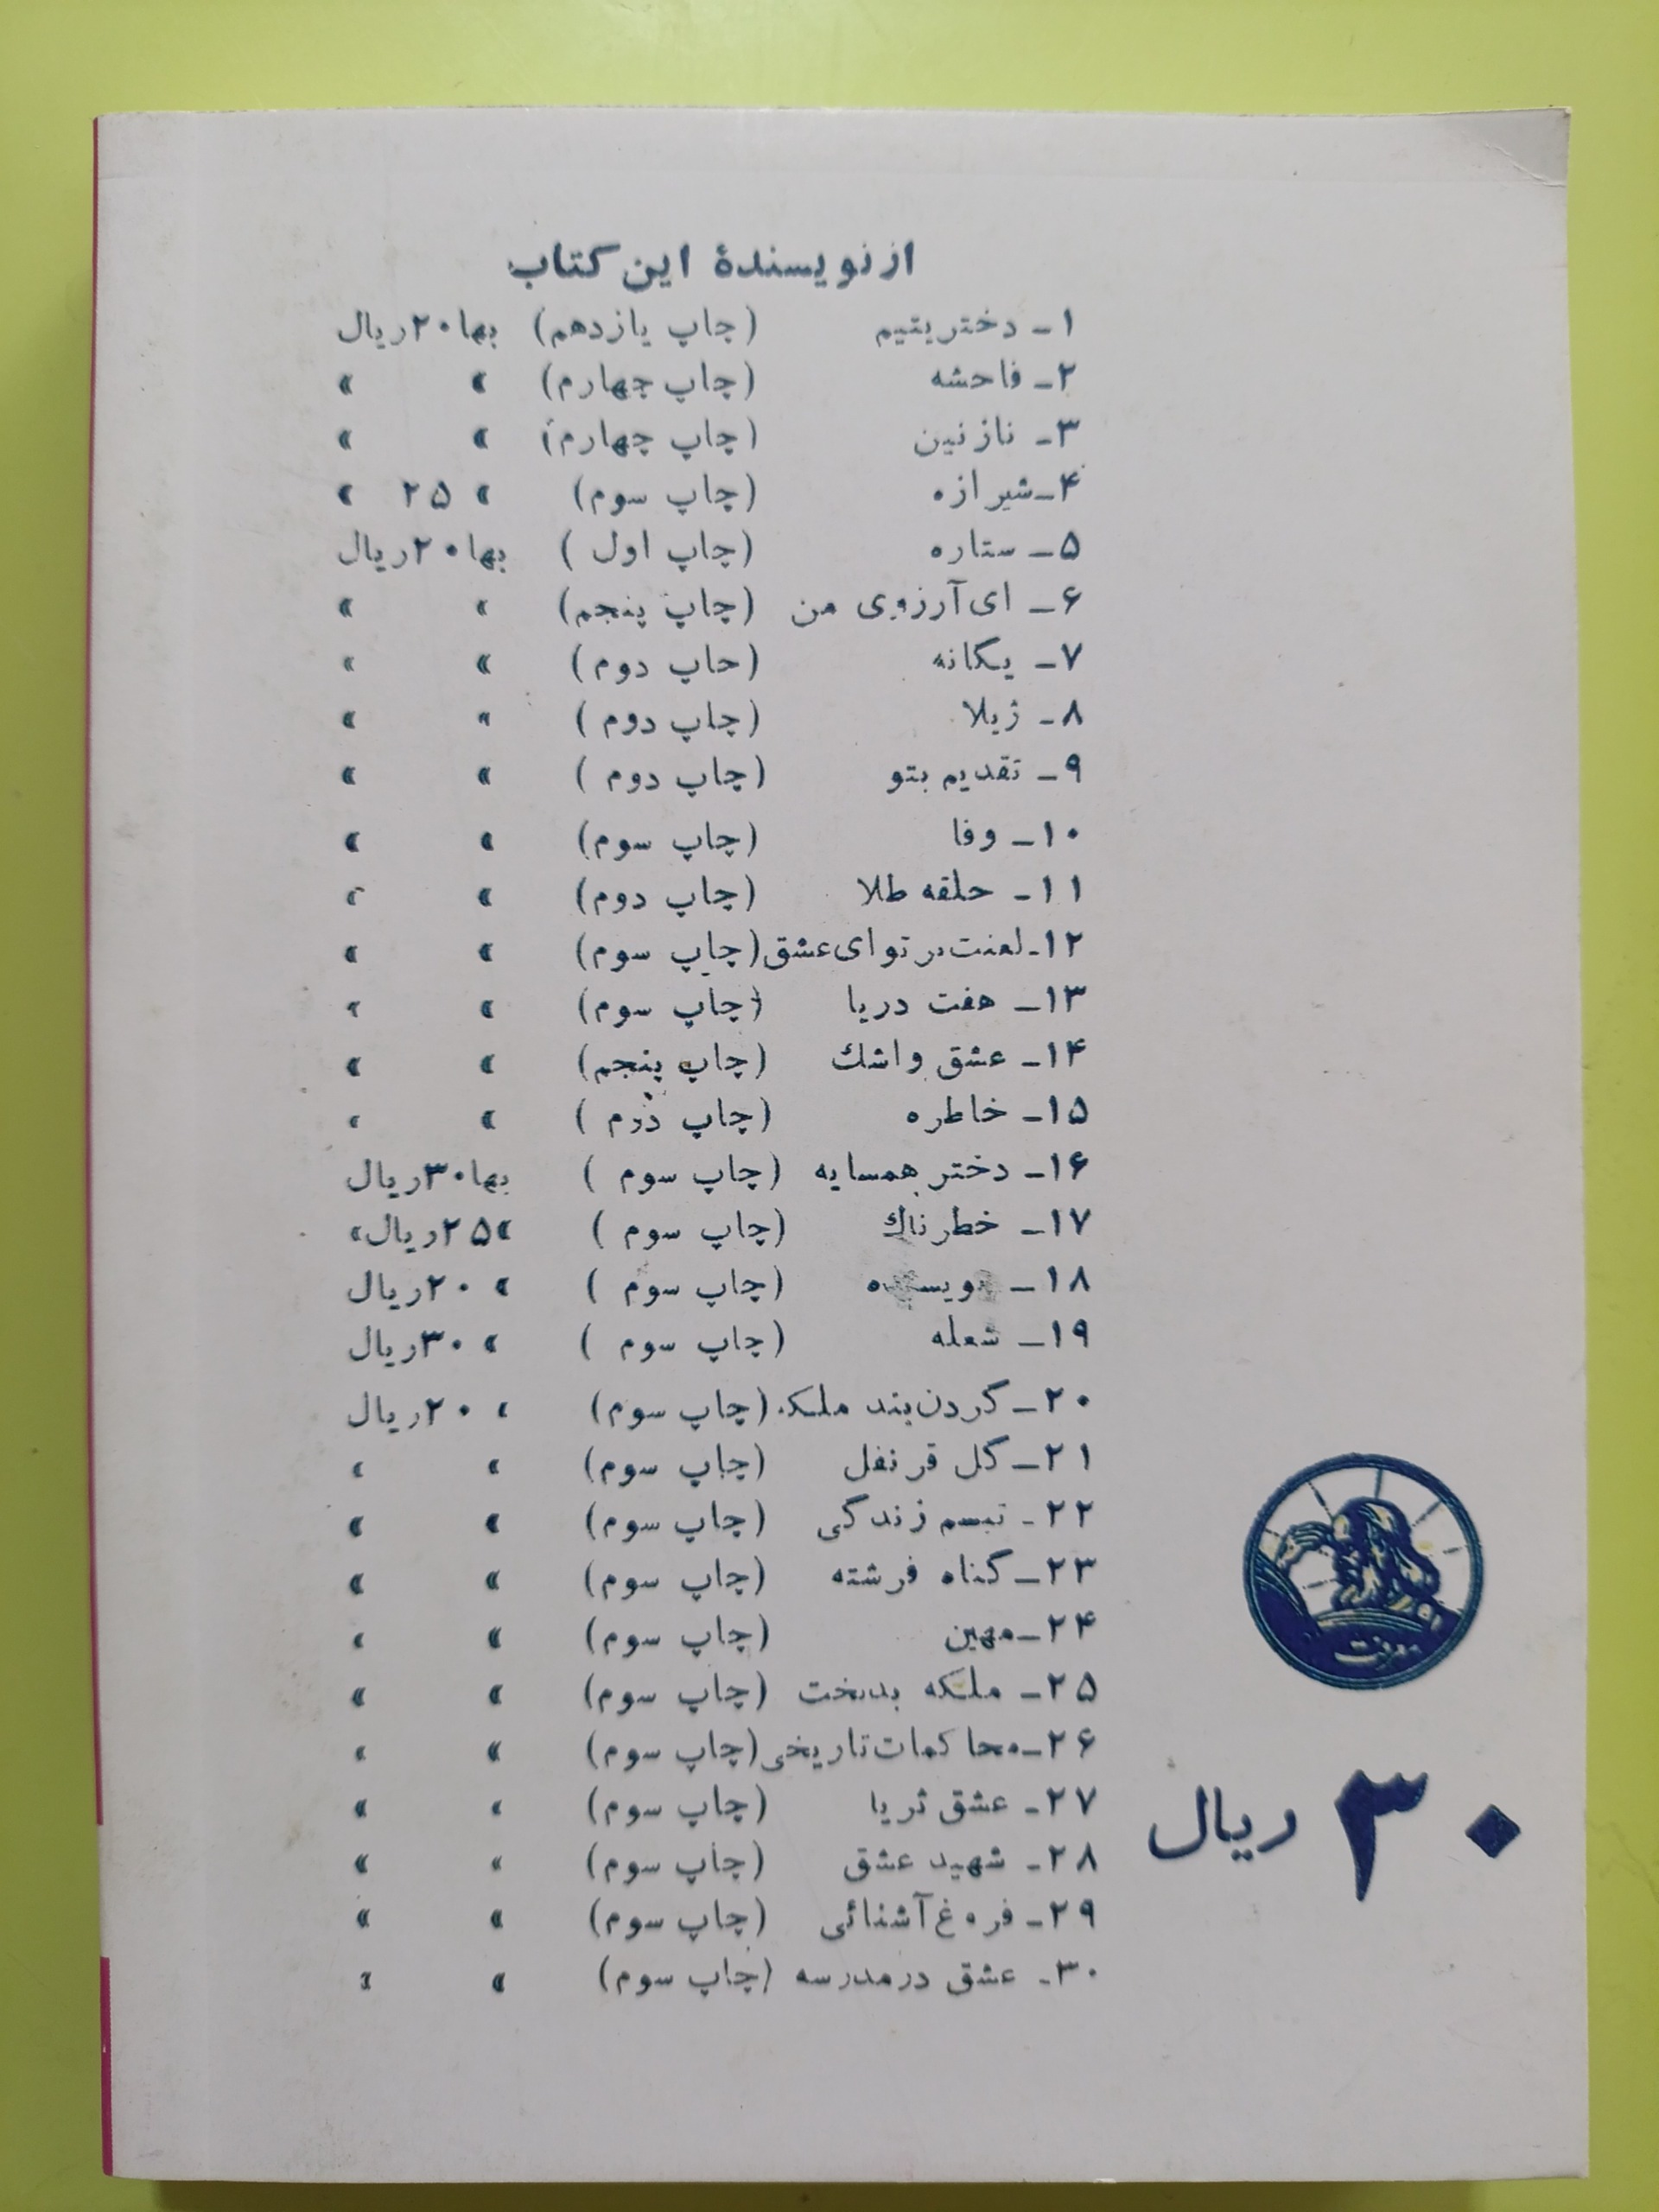 از نویسندهٔ این کتاب
۱ـ دختر یتیم (چاپ یازدهم) بها ۲۰ ریال
۲ـ فاحشه (چاپ چهارم) » »
۳ـ نازنین (چاپ چهارم) » »
۴ـ شیرازه (چاپ سوم) » ۲۵ »
۵ـ ستاره (چاپ اول) بها ۲۰ ریال
۶ـ ای آرزوی من (چاپ پنجم) » »
۷ـ یگانه (چاپ دوم) » »
۸ـ ژیلا (چاپ دوم) » »
۹ـ تقدیم بتو (چاپ دوم) » »
۱۰ـ وفا (چاپ سوم) » »
۱۱ـ حلقه طلا (چاپ دوم) » »
۱۲ـ لعنت بر تو ای عشق (چاپ سوم) » »
۱۳ـ هفت دریا (چاپ سوم) » »
۱۴ـ عشق و اشك (چاپ پنجم) » »
۱۵ـ خاطره (چاپ دوم) » »
۱۶ـ دختر همسایه (چاپ سوم) بها ۳۰ ریال
۱۷ـ خطرناك (چاپ سوم) » ۲۵ ریال »
۱۸ـ (چاپ سوم) » ۲۰ ریال
۱۹ـ شعله (چاپ سوم) » ۳۰ ریال
۲۰ـ گردن بند ملکه (چاپ سوم) » ۲۰ ریال
۲۱ـ گل قرنفل (چاپ سوم) » »
۲۲ـ تبسم زندگی (چاپ سوم) » »
۲۳ـ گناه فرشته (چاپ سوم) » »
۲۴ـ مهین (چاپ سوم) » »
۲۵ـ ملکه بدبخت (چاپ سوم) » »
۲۶ـ محاکمات تاریخی (چاپ سوم) » »
۲۷ـ عشق ثریا (چاپ سوم) » »
۲۸ـ شهید عشق (چاپ سوم) » »
۲۹ـ فروغ آشنائی (چاپ سوم) » »
۳۰ـ عشق در مدرسه (چاپ سوم) » »
معرفت
۳۰ ریال